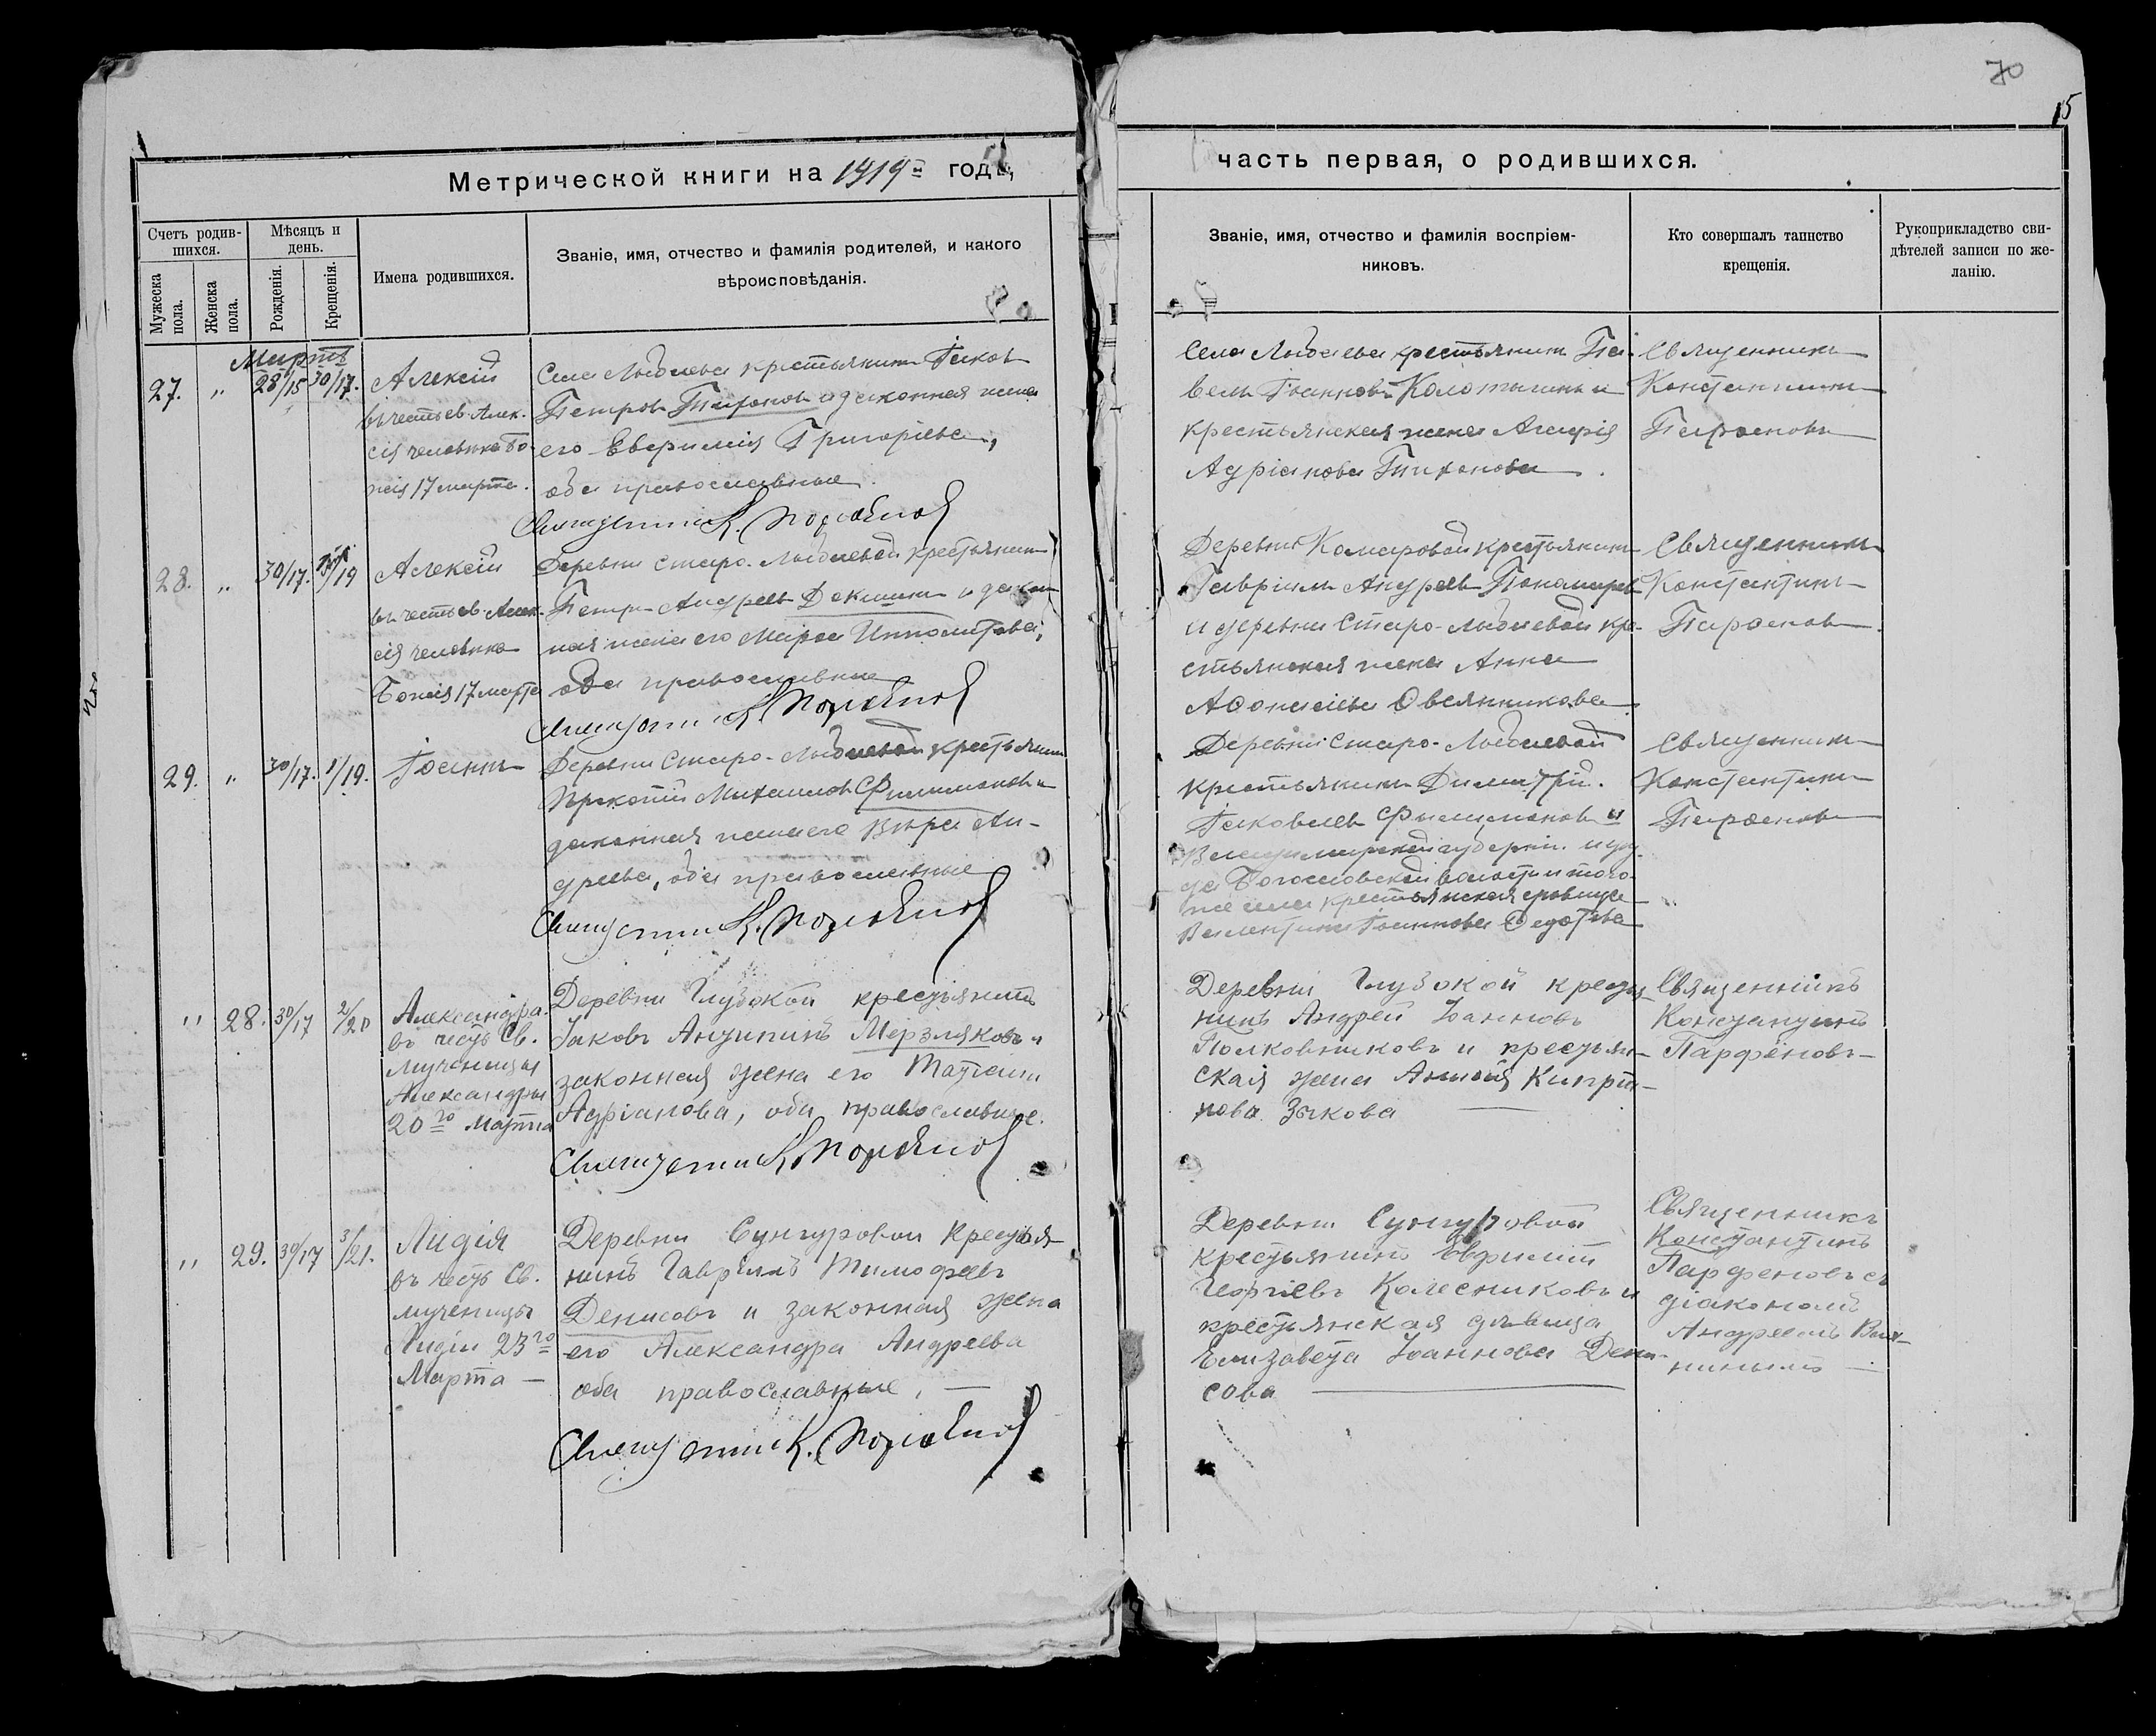 70
15
Метрической книги на 1919 й годъ,
часть первая, о родившихся.
Счетъ родив-
шихся.
Мужеска
пола.
Женска
пола.
Мѣсяцъ и
день.
Рожденія.
Крещенія.
Имена родившихся.
Званіе, имя, отчество и фамилія родителей, и какого
вѣроисповѣданія.
Званіе, имя, отчество и фамилія воспріем-
никовъ.
Кто совершалъ таинство
крещенія.
Рукоприкладство сви-
дѣтелей записи по же-
ланію.
Мартъ
27. „ 28/15 30/17.
Алексій
въ честь св. Алек-
сія человѣка Бо-
жія 17 марта.
Села крестьянинъ Іаковъ
Петровъ и законная жена
его Евфимія Григорьева,
оба православные.
Священникъ К. Парѳеновъ
Села крестьянинъ Па-
велъ Іоанновъ и
крестьянская жена
Адріанова Тихонова.
Священникъ
Константинъ
Парѳеновъ
28. „ 30/17. /19
Алексій
въ честь св. Алек-
сія человѣка
Божія 17 марта
Деревни Старо- крестьянинъ
Петръ Андреевъ и закон-
ная жена его Марѳа Ипполитова,
оба православные
Священникъ К. Парѳеновъ
Деревни Комаровой крестьянинъ
Гавріилъ Андреевъ Пономаревъ
и деревни Старо- кре-
стьянская жена Анна
Аѳонасіева Овсянникова.
Священникъ
Константинъ
Парѳеновъ.
29. „ 30/17. 1/19.
Іоаннъ
Деревни Старо- крестьянинъ
Прокопій Михаиловъ Филимоновъ и
законная жена его Вѣра Ан-
дреева, оба православные
Священникъ К. Парѳеновъ
Деревни Старо-
крестьянинъ Димитрій
Іаковлевъ Филимоновъ и
Владимирской губерніи и уѣз-
да Богословской волости и того-
же села крестьянская дѣвица
Валентина Іоаннова Ѳедотова
Священникъ
Константинъ
Парѳеновъ
„ 28. 30/17 2/20
Александра
въ честь Св.
мученицы
Александры
20го Марта
Деревни Глубокой крестьянинъ
Іаковъ Антипинъ Мерзляковъ и
законная жена его Татіана
Адріанова, оба православные.
Священникъ К. Парѳеновъ
Деревни Глубокой крестья-
нинъ Андрей Іоанновъ
Полковниковъ и крестьян-
ская жена Кипрія-
нова Зыкова
Священникъ
Константинъ
Парфеновъ
„ 29. 30/17 3/21.
Лидія
въ честь Св.
мученицы
Лидіи 23го
Марта
Деревни Сунгуровой Крестья-
нинъ Гавріилъ Тимофеевъ
Денисовъ и законная жена
его Александра Андреева
оба православные.
Священникъ К. Парѳеновъ
Деревни Сунгуровой
крестьянинъ Евфимій
Георгіевъ Колесниковъ и
крестьянская дѣвица
Елизавета Іоаннова Дени-
сова
Священникъ
Константинъ
Парфеновъ съ
діакономъ
Андреемъ